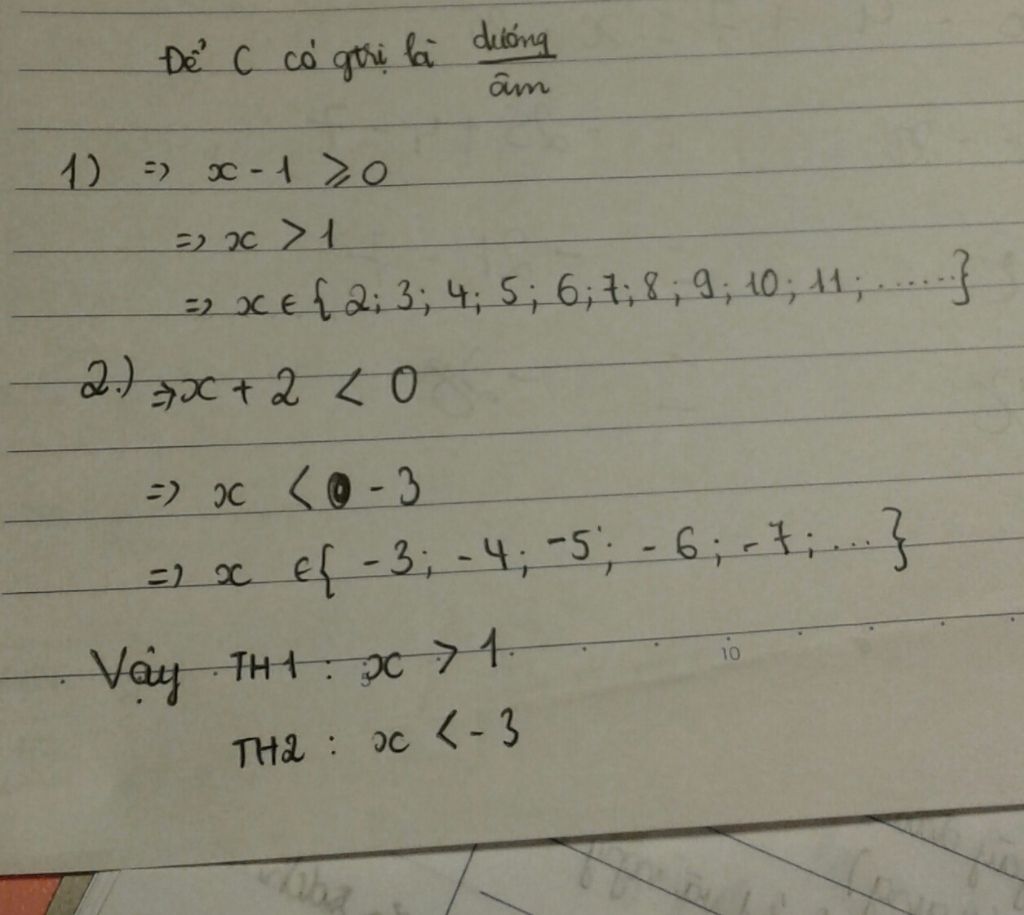 Để C có gtrị là dướng
âm
1) => x - 1 ⩾ 0
=> x > 1
=> x ∈ { 2; 3; 4; 5; 6; 7; 8; 9; 10; 11; ......}
2.) => x + 2 < 0
=> x < - 3
=> x ∈ { -3; -4; -5; -6; -7; ...}
Vậy TH1 : x > 1
10
TH2 : x < - 3